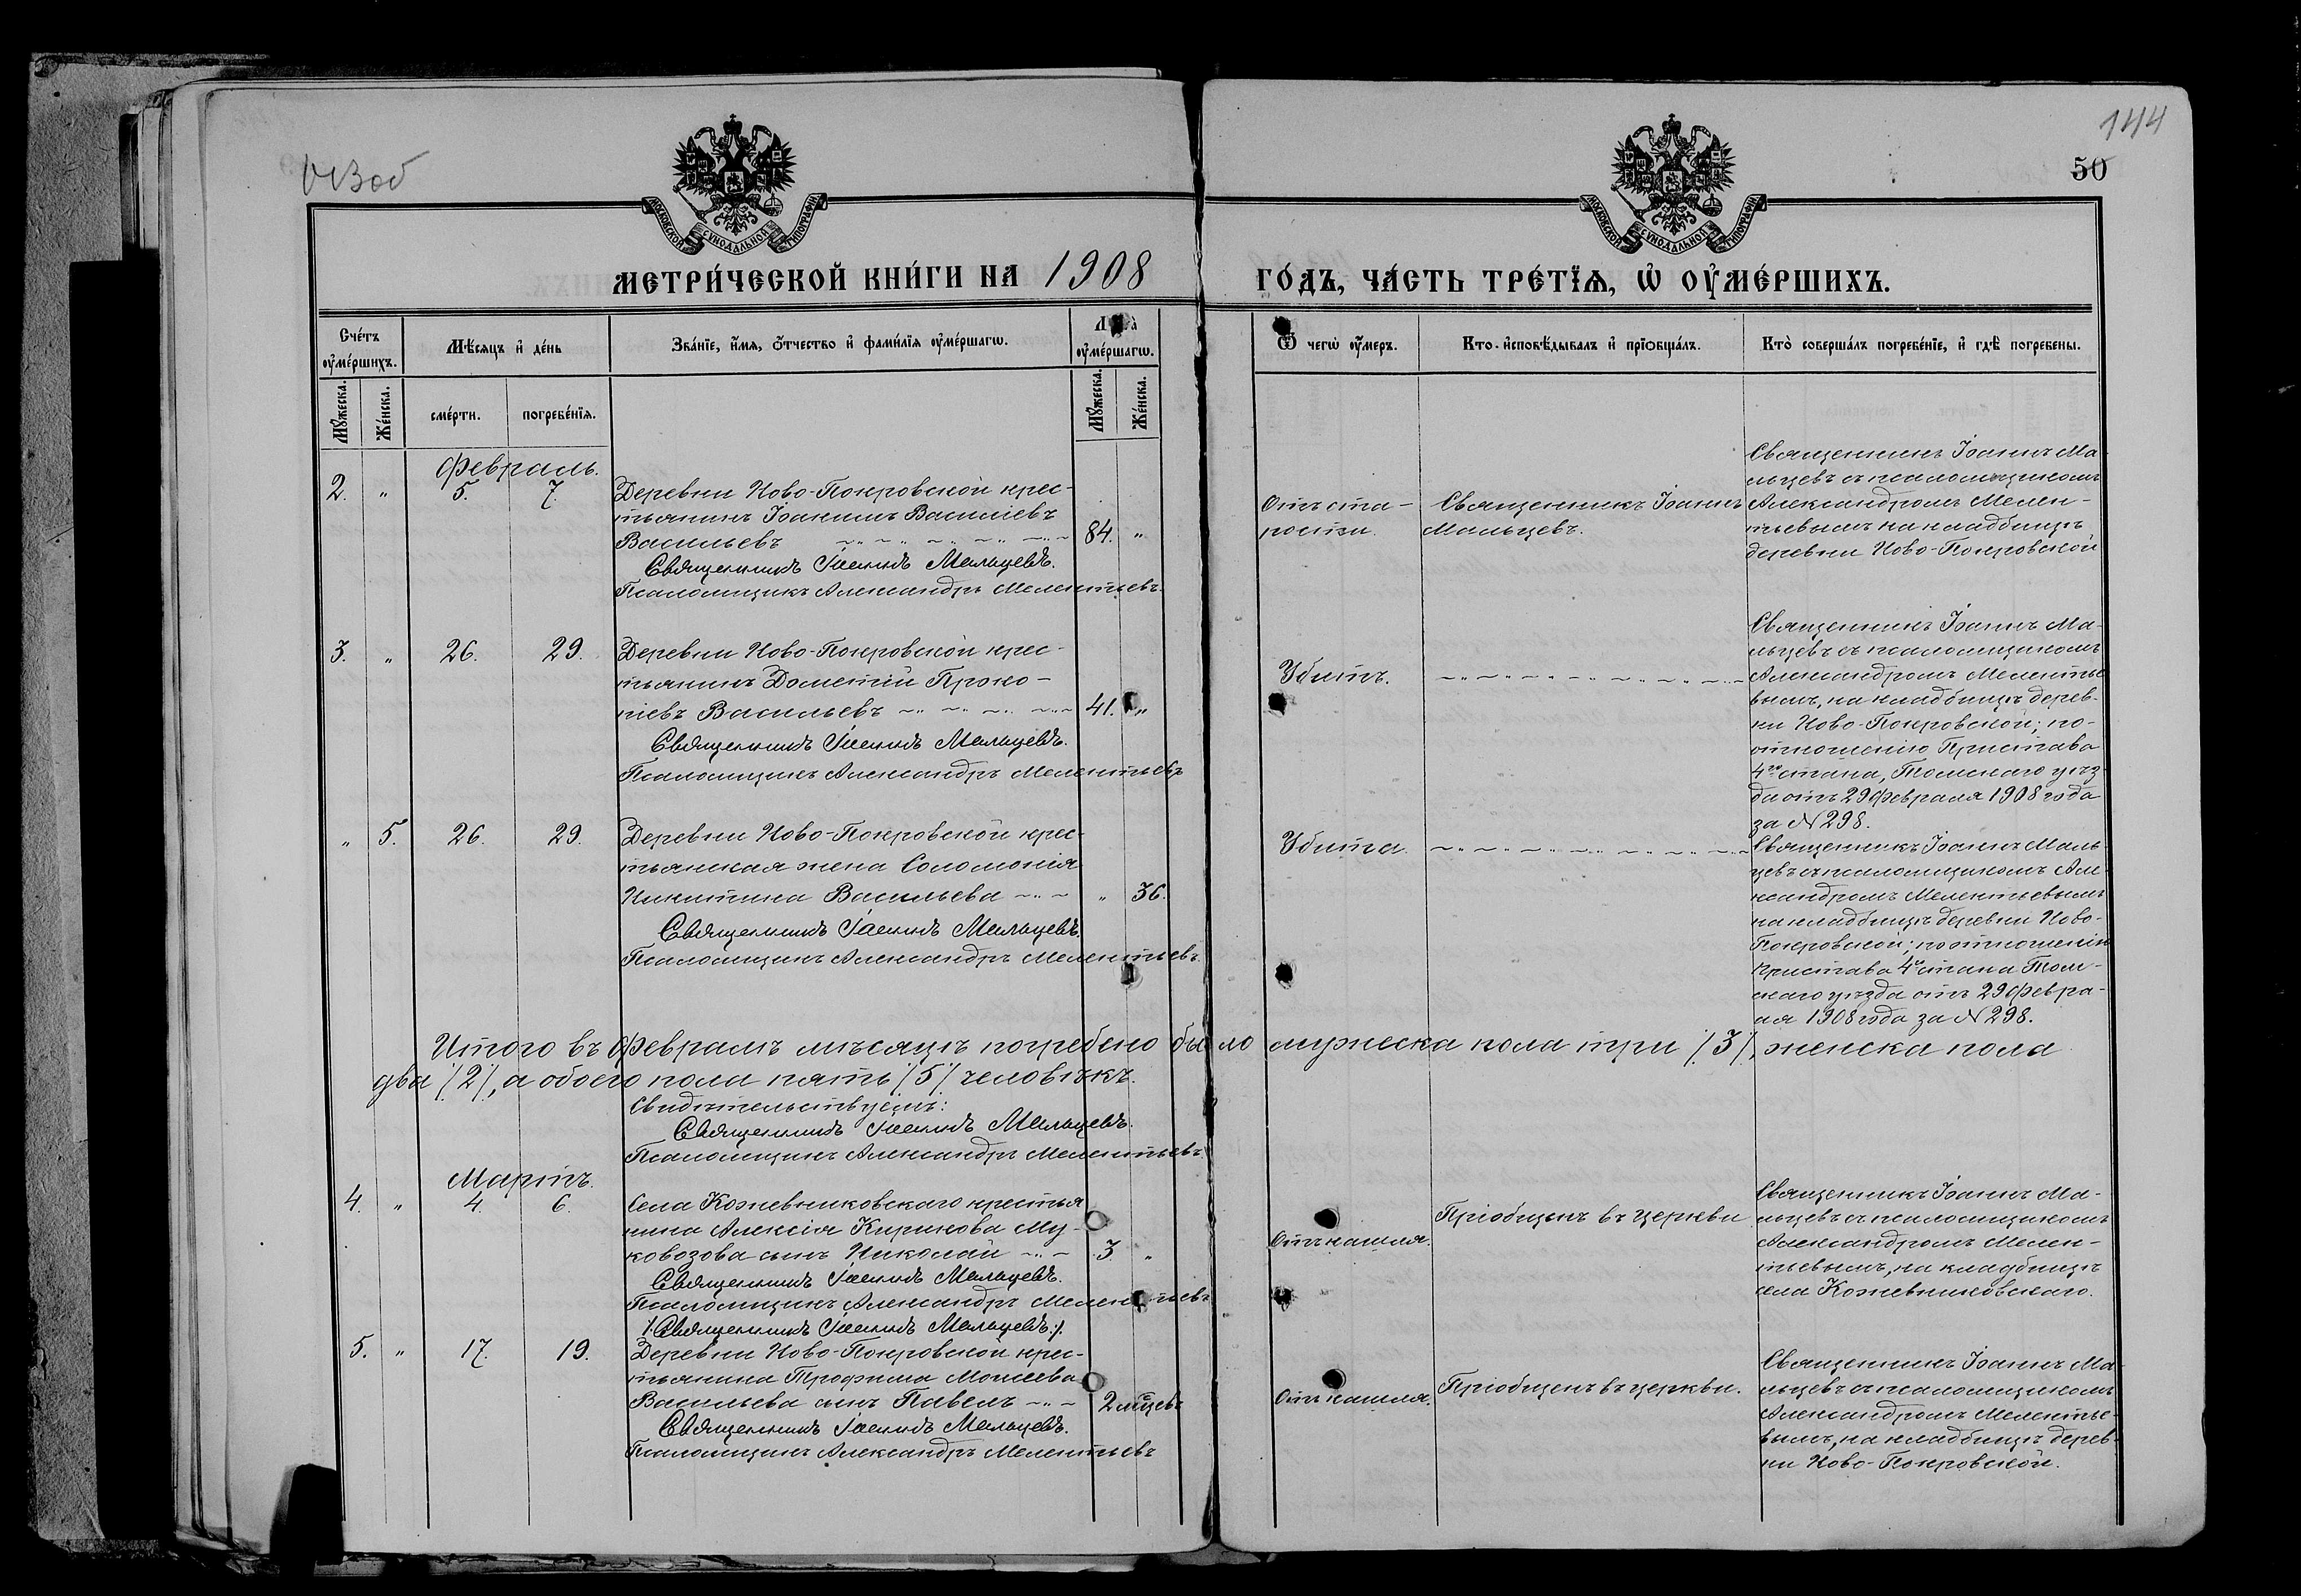 144
50
МОСКОВСКОЙ СѴНОДАЛЬНОЙ ТИПОГРАФІИ
МОСКОВСКОЙ СѴНОДАЛЬНОЙ ТИПОГРАФІИ
МЕТРИ́ЧЕСКОЙ КНИ́ГИ НА 1908
ГО́ДЪ, ЧА́СТЬ ТРЕ́ТЇѦ, Ѽ ОУ҆МЕ́РШИХЪ.
Сче́тъ оу҆ме́ршихъ.
Мѣ́сяцъ и҆ де́нь
Зва́нїе, и҆́мя, ѻ҆́тчество и҆ фами́лїя оу҆ме́ршагѡ.
оу҆ме́ршагѡ.
Ѿ чегѡ̀ оу҆́меръ.
Кто̀ и҆сповѣ́дывалъ и҆ прїѡбща́лъ.
Кто̀ соверша́лъ погребе́нїе, и҆ гдѣ̀ погребены̀.
Мꙋ́жеска.
Же́нска.
сме́рти.
погребе́нїя.
Мꙋ́жеска.
Же́нска.
Февраль.
2. " 5. 7. Деревни Ново-Покровской крес-
тьянинъ Іоакимъ Василіевъ
Васильевъ 84. "
Священникъ Іоаннъ Мальцевъ.
Псаломщикъ Александръ Мелентьевъ.
Отъ ста-
рости.
Священникъ Іоаннъ
Мальцевъ.
Священникъ Іоаннъ Ма-
льцевъ съ псаломщикомъ
Александромъ Мелен-
тьевымъ на кладбищѣ
деревни Ново-Покровской
3. " 26. 29. Деревни Ново-Покровской крес-
тьянинъ Дометій Проко-
піевъ Васильевъ 41. "
Священникъ Іоаннъ Мальцевъ.
Псаломщикъ Александръ Мелентьевъ
Убитъ.
Священникъ Іоаннъ Ма-
льцевъ съ псаломщикомъ
Александромъ Мелентье-
вымъ, на кладбищѣ дерев-
ни Ново-Покровской; по-
отношенію Пристава
4го стана, Томскаго уѣз-
да отъ 29 февраля 1908 года
за № 298.
" 5. 26. 29. Деревни Ново-Покровской крес-
тьянская жена Соломонія
Никитина Васильева " 36.
Священникъ Іоаннъ Мальцевъ.
Псаломщикъ Александръ Мелентьевъ.
Убита.
Священникъ Іоаннъ Маль-
цевъ съ псаломщикомъ Але-
ксандромъ Мелентьевымъ
на кладбищѣ деревни Ново-
Покровской; по отношенію
Пристава 4го стана Том-
скаго уѣзда отъ 29 февра-
ля 1908 года за № 298.
Итого въ Февралѣ мѣсяцѣ погребено было мужеска пола три /3/, женска пола
два /2/, а обоего пола пять /5/ человѣкъ.
Свидѣтельствуемъ:
Священникъ Іоаннъ Мальцевъ.
Псаломщикъ Александръ Мелентьевъ.
Мартъ.
4. " 4. 6. Села Кожевниковскаго крестья
нина Алексія Кирикова Му-
ковозова сынъ Николай 3. "
Священникъ Іоаннъ Мальцевъ.
Псаломщикъ Александръ Мелентьевъ
/:Священникъ Іоаннъ Мальцевъ:/.
Отъ кашля.
Пріобщенъ въ церкви.
Священникъ Іоаннъ Ма-
льцевъ съ псаломщикомъ
Александромъ Мелен-
тьевымъ, на кладбищѣ
села Кожевниковскаго.
5. " 17. 19. Деревни Ново-Покровской крес-
тьянина Трофима Моисеева
Васильева сынъ Павелъ 2 мѣсцевъ
Священникъ Іоаннъ Мальцевъ.
Псаломщикъ Александръ Мелентьевъ
Отъ кашля.
Пріобщенъ въ церкви.
Священникъ Іоаннъ Ма-
льцевъ съ псаломщикомъ
Александромъ Мелентье-
вымъ, на кладбищѣ дерев-
ни Ново-Покровской.